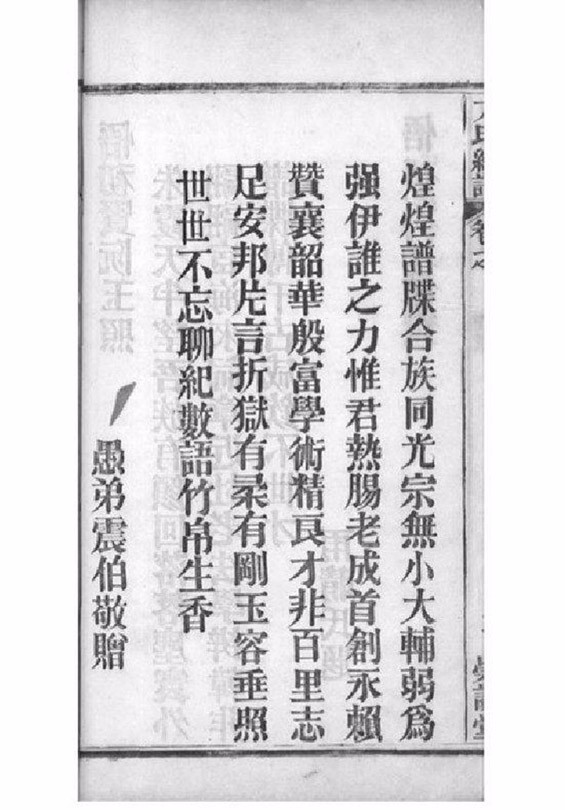 煌煌譜牒合族同光宗無小大輔弱爲
强伊誰之力惟君熱腸老成首創永賴
贊襄韶華殷富學術精良才非百里志
足安邦片言折獄有柔有剛玉容垂照
世世不忘聊紀數語竹帛生香
愚弟震伯敬贈